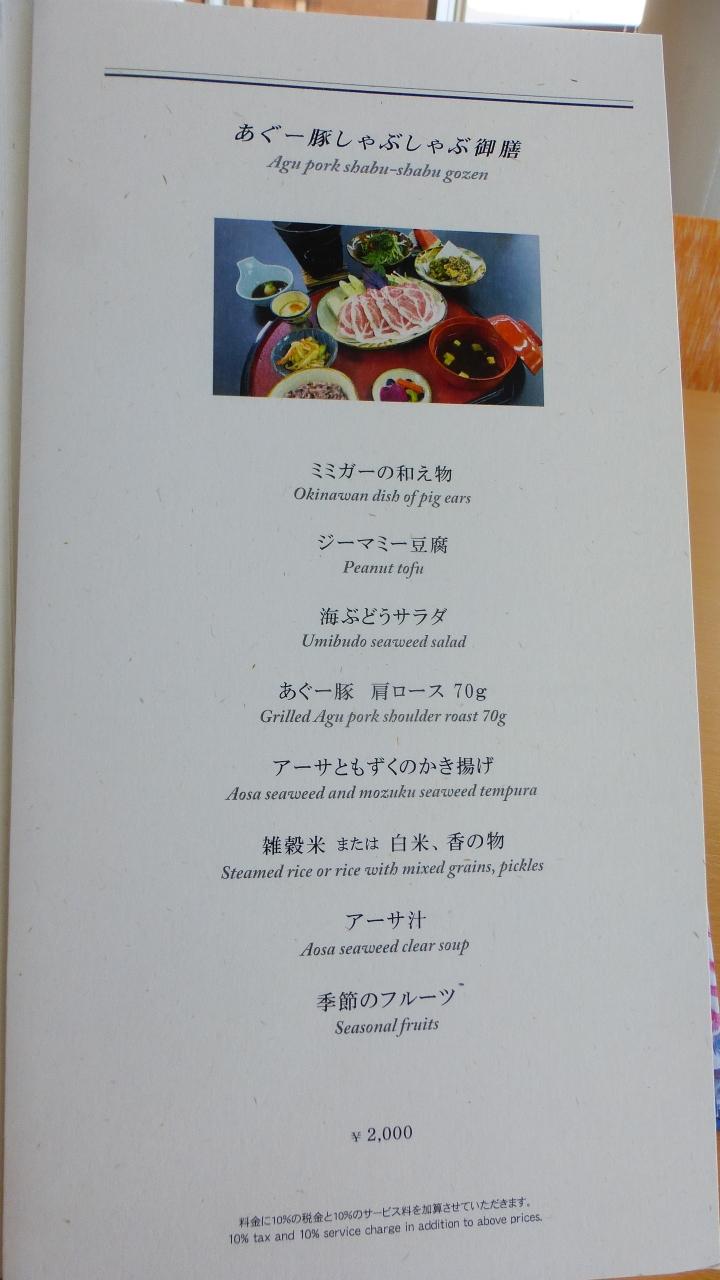 あぐー豚しゃぶしゃぶ御膳
Agu pork shabu-shabu gozen
ミミガーの和え物
Okinawan dish of pig ears
ジーマミー豆腐
Peanut tofu
海ぶどうサラダ
Umibudo seaweed salad
あぐー豚 肩ロース 70g
Grilled Agu pork shoulder roast 70g
アーサともずくのかき揚げ
Aosa seaweed and mozuku seaweed tempura
雑穀米 または 白米、香の物
Steamed rice or rice with mixed grains, pickles
アーサ汁
Aosa seaweed clear soup
季節のフルーツ
Seasonal fruits
¥ 2,000
料金に10%の税金と10%のサービス料を加算させていただきます。
10% tax and 10% service charge in addition to above prices.